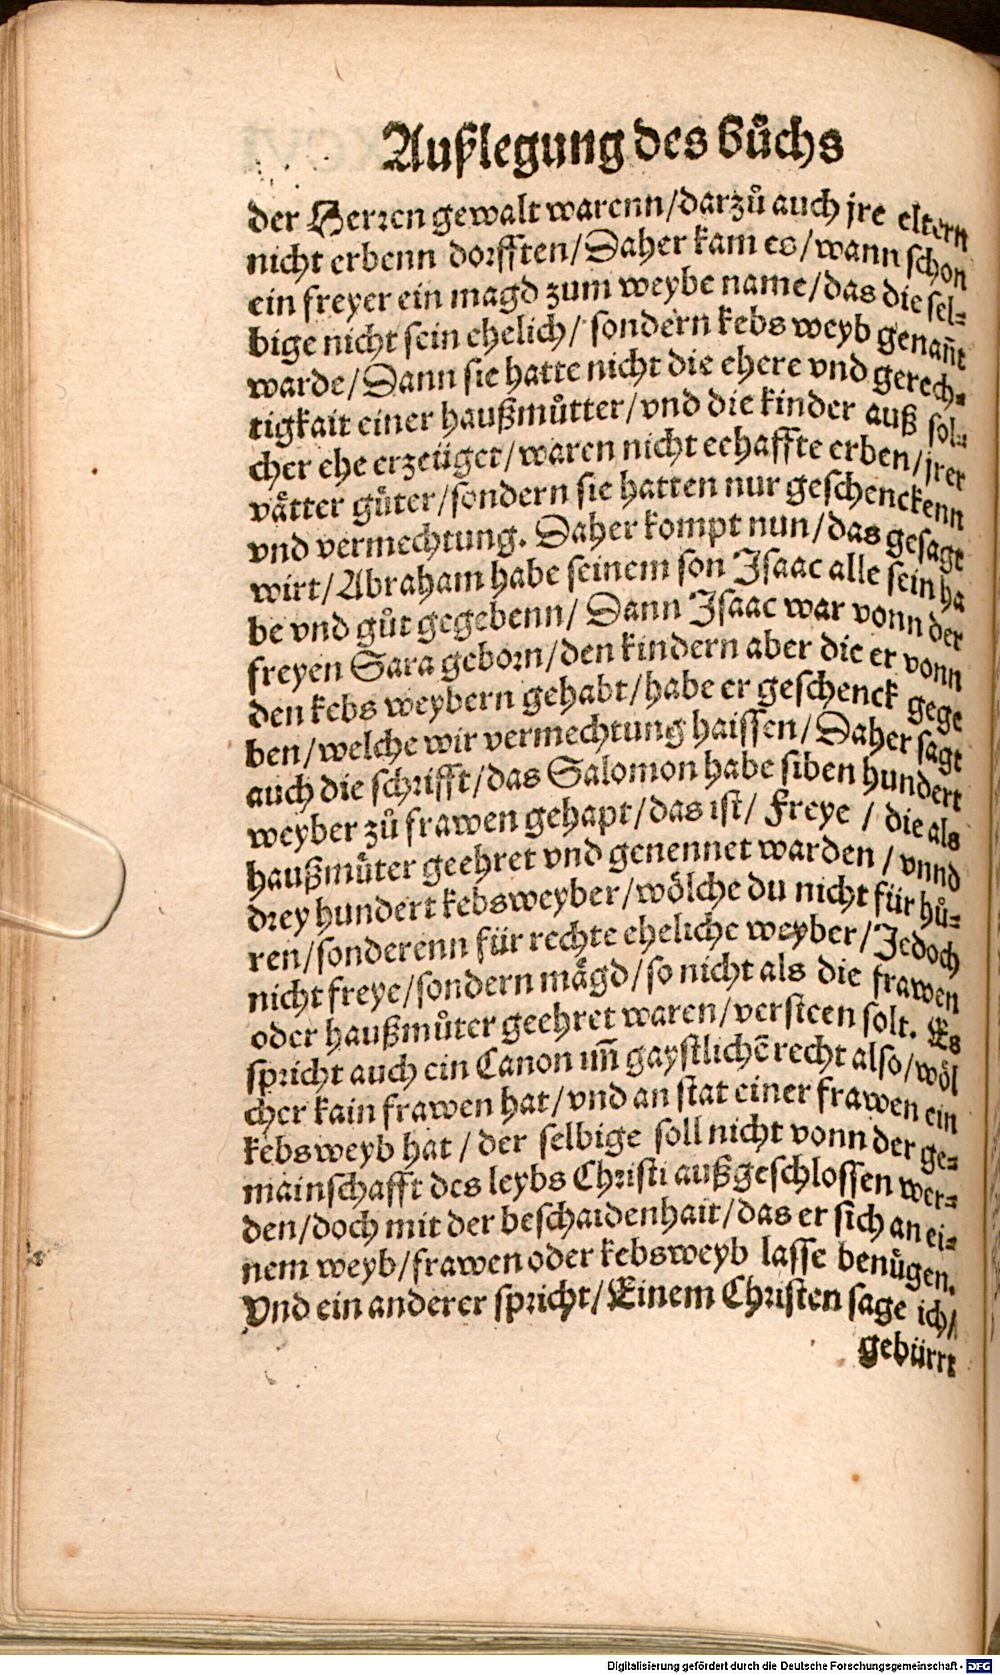 Außlegung des bůchs
der Herren gewalt warenn/darzů auch jre eltern
nicht erbenn dorfften/Daher kam es/wann schon
ein freyer ein magd zum weybe name/das die sel-
bige nicht sein ehelich/ sondern kebs weyb genañt
warde/Dann sie hatte nicht die ehere vnd gerech-
tigkait einer haußmůtter/vnd die kinder auß sol-
cher ehe erzeüget/waren nicht eehaffte erben/jrer
vätter gůter/sondern sie hatten nur geschenckenn
vnd vermechtung. Daher kompt nun/das gesagt
wirt/Abraham habe seinem son Isaac alle sein ha
be vnd gůt gegebenn/ Dann Isaac war vonn der
freyen Sara geborn/den kindern aber die er vonn
den kebs weybern gehabt/habe er geschenck gege
ben/welche wir vermechtung haissen/Daher sagt
auch die schrifft/das Salomon habe siben hundert
weyber zů frawen gehapt/das ist/ Freye / die als
haußmůter geehret vnd genennet warden / vnnd
drey hundert kebsweyber/wölche du nicht für hů-
ren/sonderenn für rechte eheliche weyber/Jedoch
nicht freye/sondern mägd/so nicht als die frawen
oder haußmůter geehret waren/versteen solt. Es
spricht auch ein Canon im̄ gaystlichē recht also/wöl
cher kain frawen hat/vnd an stat einer frawen ein
kebsweyb hat / der selbige soll nicht vonn der ge-
mainschafft des leybs Christi außgeschlossen wer-
den/doch mit der beschaidenhait/das er sich an ei-
nem weyb/frawen oder kebsweyb lasse benůgen.
Vnd ein anderer spricht/Einem Christen sage ich/
gebürrt
Digitalisierung gefördert durch die Deutsche Forschungsgemeinschaft - DFG